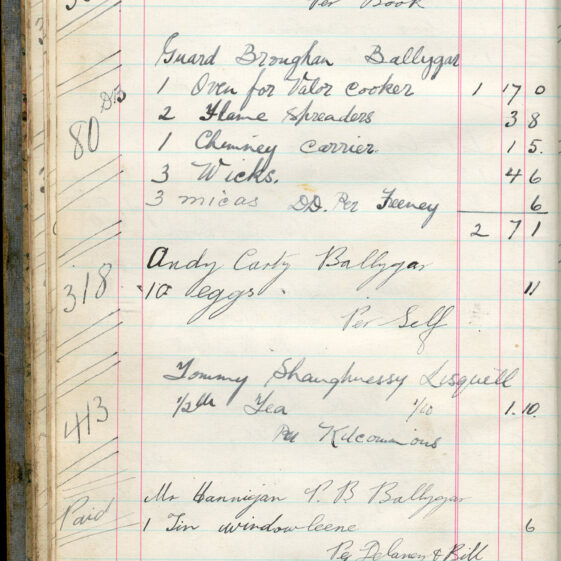 Per Book
Guard Broughan Ballygar
DB
1 Oven for Valor cooker 1 17 0
2 Flame Spreaders 3 8
80
1 Chimney carrier. 1 5.
3 Wicks. 4 6
3 micas D.D. Per Feeney 6
2 7 1
Andy Carty Ballygar
318
10 eggs. 11
Per Self
Tommy Shaughnessy Lisquell
413
1/2 lb Tea 1/10 1.10.
Per Kilcommons
Mr Hannigan P. B Ballygar
Paid
1 Tin windowleene 6
Per Delaney & Bill